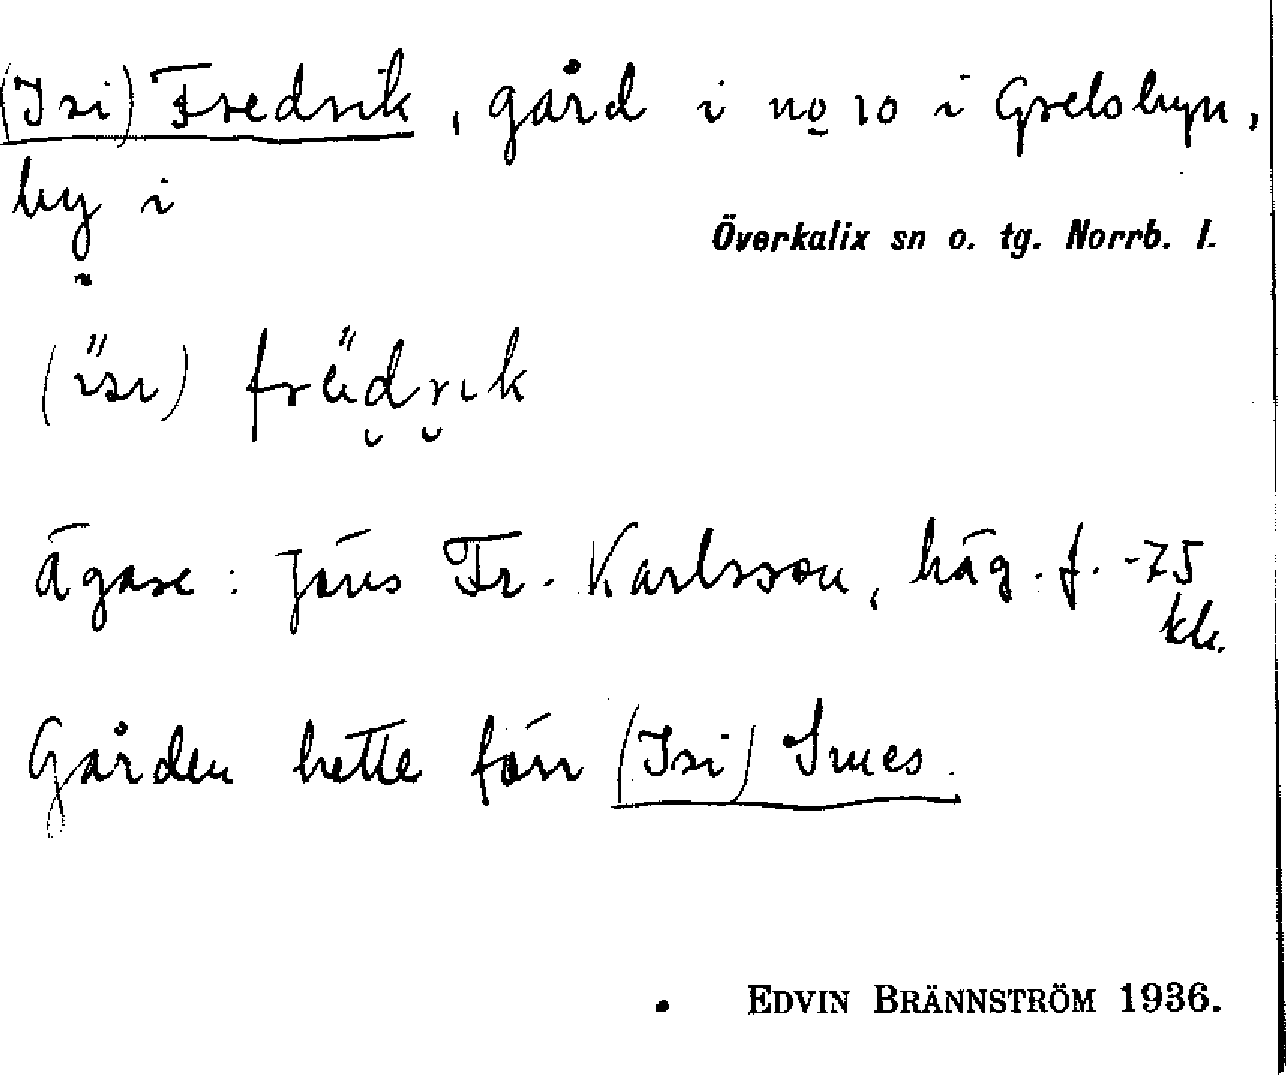 (Isi) Fredrik, gård i no 10 i Grelsbyn,
by i
Överkalix sn o. tg. Norrb. l.
(ïsı) fräd̮r̮ık
Ägare: Jöns Fr. Karlsson, häg. f. -75
kk.
Gården hette förr (Isi) Smes.
EDVIN BRÄNNSTRÖM 1936.